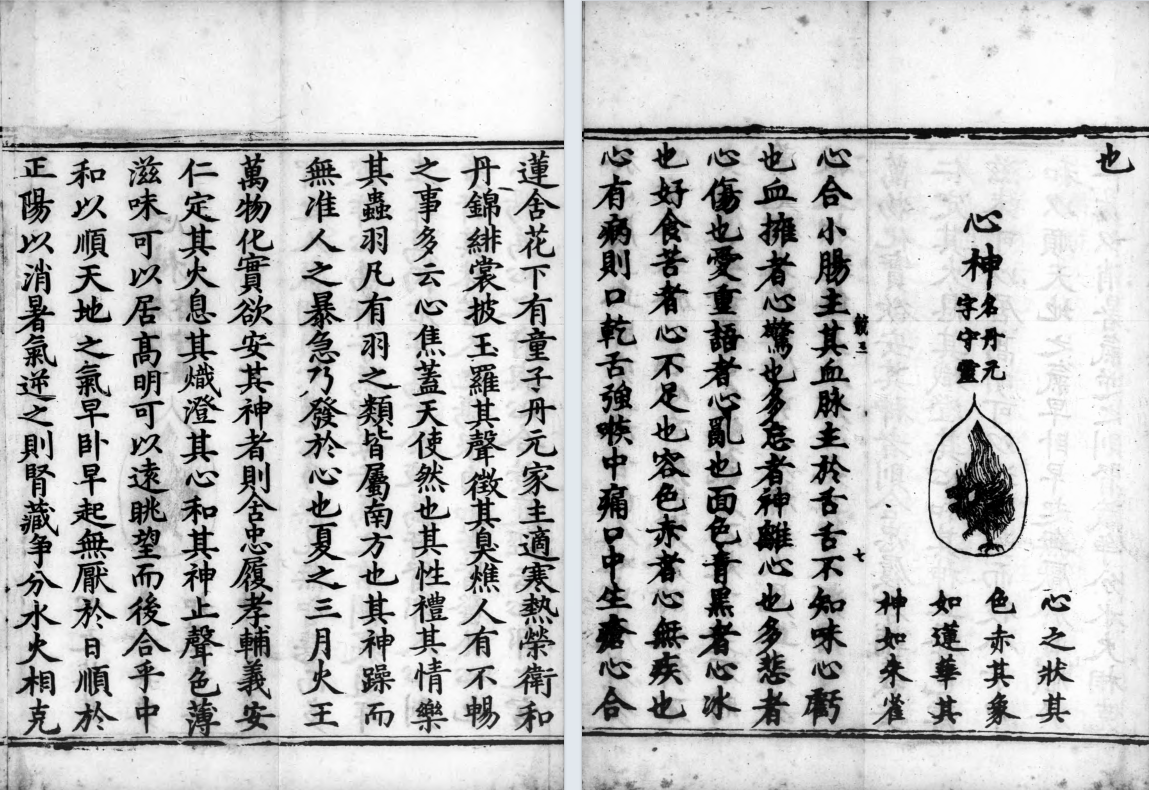 也
心神
名丹元
字守靈
心之狀其
色赤其象
如蓮華其
神如朱雀
七
心合小腸主其血脉主於舌舌不知味心虧
也血擁者心驚也多忘者神離心也多悲者
心傷也愛重語者心亂也面色青黑者心冰
也好食苦者心不足也容色赤者心無疾也
心有病則口乾舌強喉中痛口中生瘡心合
蓮舍花下有童子丹元家主適寒熱榮衛和
丹錦緋裳披玉羅其聲徵其臭燋人有不暢
之事多云心焦蓋天使然也其性禮其情樂
其蟲羽凡有羽之類皆屬南方也其神躁而
無准人之暴急乃發於心也夏之三月火王
萬物化實欲安其神者則含忠履孝輔義安
仁定其火息其熾澄其心和其神上聲色薄
滋味可以居髙明可以遠眺望而後合乎中
和以順天地之氣早卧早起無厭於日順於
正陽以消暑氣逆之則腎藏争分水火相克